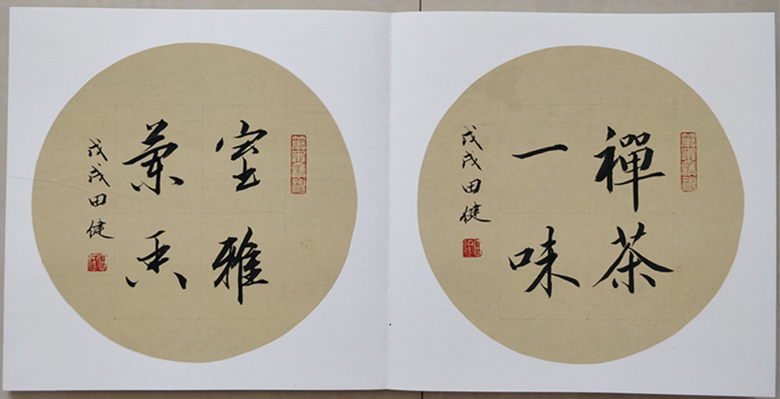 禪茶
一味
戊戌田健
室雅
蘭香
戊戌田健